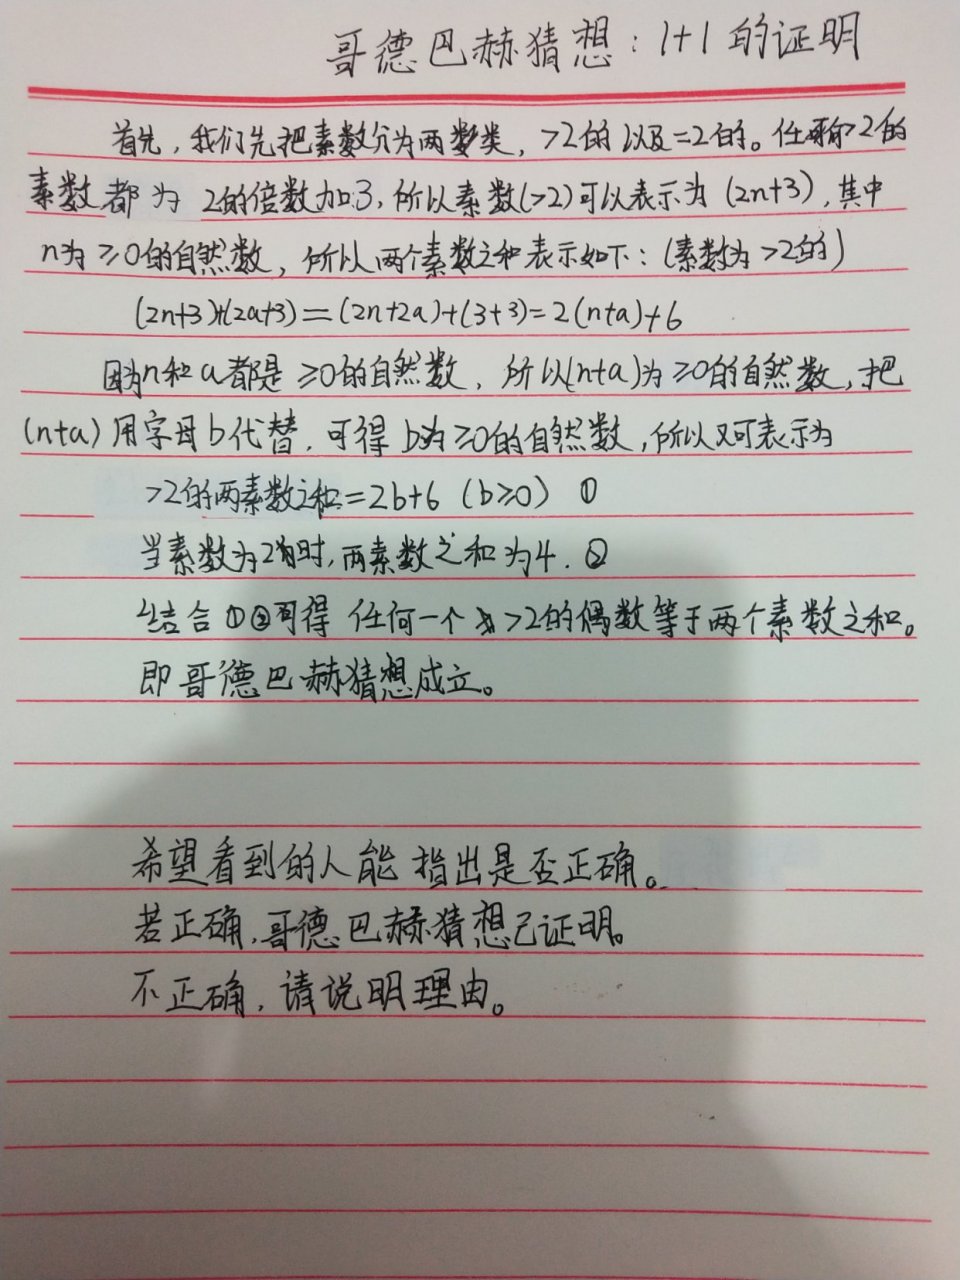 哥德巴赫猜想：1+1的证明
首先，我们先把素数分为两类，>2的以及=2的。任何>2的
素数都为2的倍数加3，所以素数(>2)可以表示为(2n+3)，其中
n为≥0的自然数，所以两个素数之和表示如下：(素数为>2的)
(2n+3)+(2a+3)=(2n+2a)+(3+3)=2(n+a)+6
因为n和a都是≥0的自然数，所以(n+a)为≥0的自然数，把
(n+a)用字母b代替，可得b为≥0的自然数，所以又可表示为
>2的两素数之和=2b+6 (b≥0) ①
当素数为2时，两素数之和为4. ②
结合①②可得 任何一个>2的偶数等于两个素数之和。
即哥德巴赫猜想成立。
希望看到的人能指出是否正确。
若正确，哥德巴赫猜想已证明。
不正确，请说明理由。